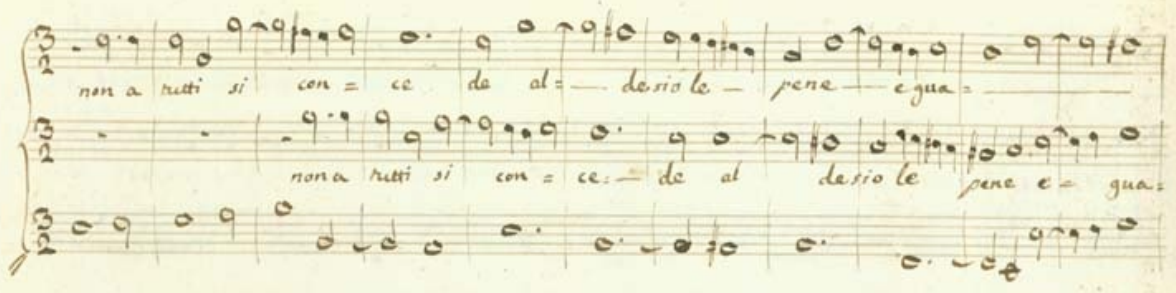 non a tutti si con = ce de al = desio le pene e gua =
non a tutti si con = ce = de al desio le pene e = gua =